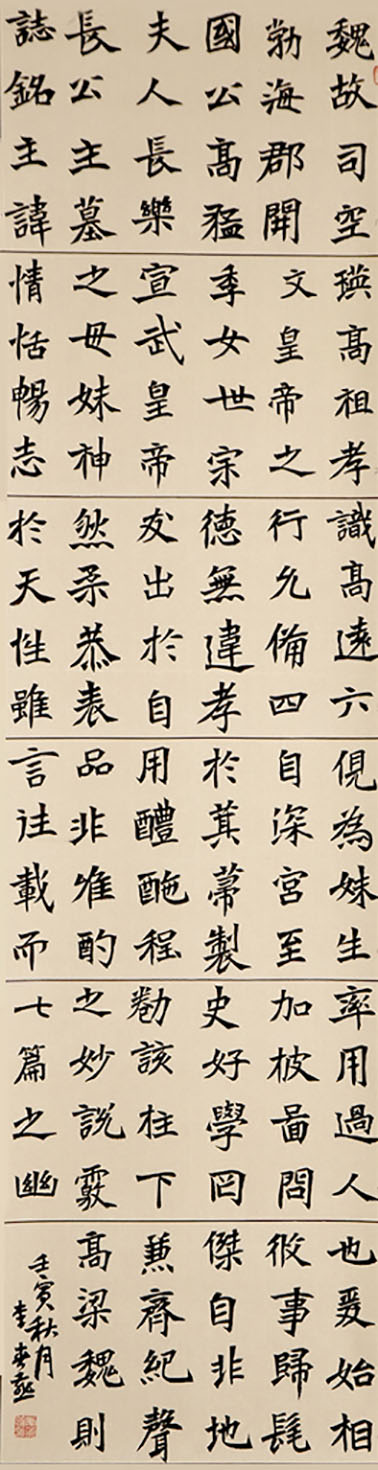 魏故司空
勃海郡開
國公髙猛
夫人長樂
長公主墓
誌銘主諱
瑛髙祖孝
文皇帝之
季女世宗
宣武皇帝
之母妹神
情恬暢志
識髙遠六
行允備四
德無違孝
友出於自
然柔恭表
於天性雖
俔為妹生
自深宮至
於萁菷製
用醴酏程
品非唯酌
言往載而
率用過人
加披啚問
史好學罔
勌該柱下
之妙說覈
七篇之幽
也爰始相
攸事歸髦
傑自非地
兼齊紀聲
髙梁魏則
壬寅秋月
李春